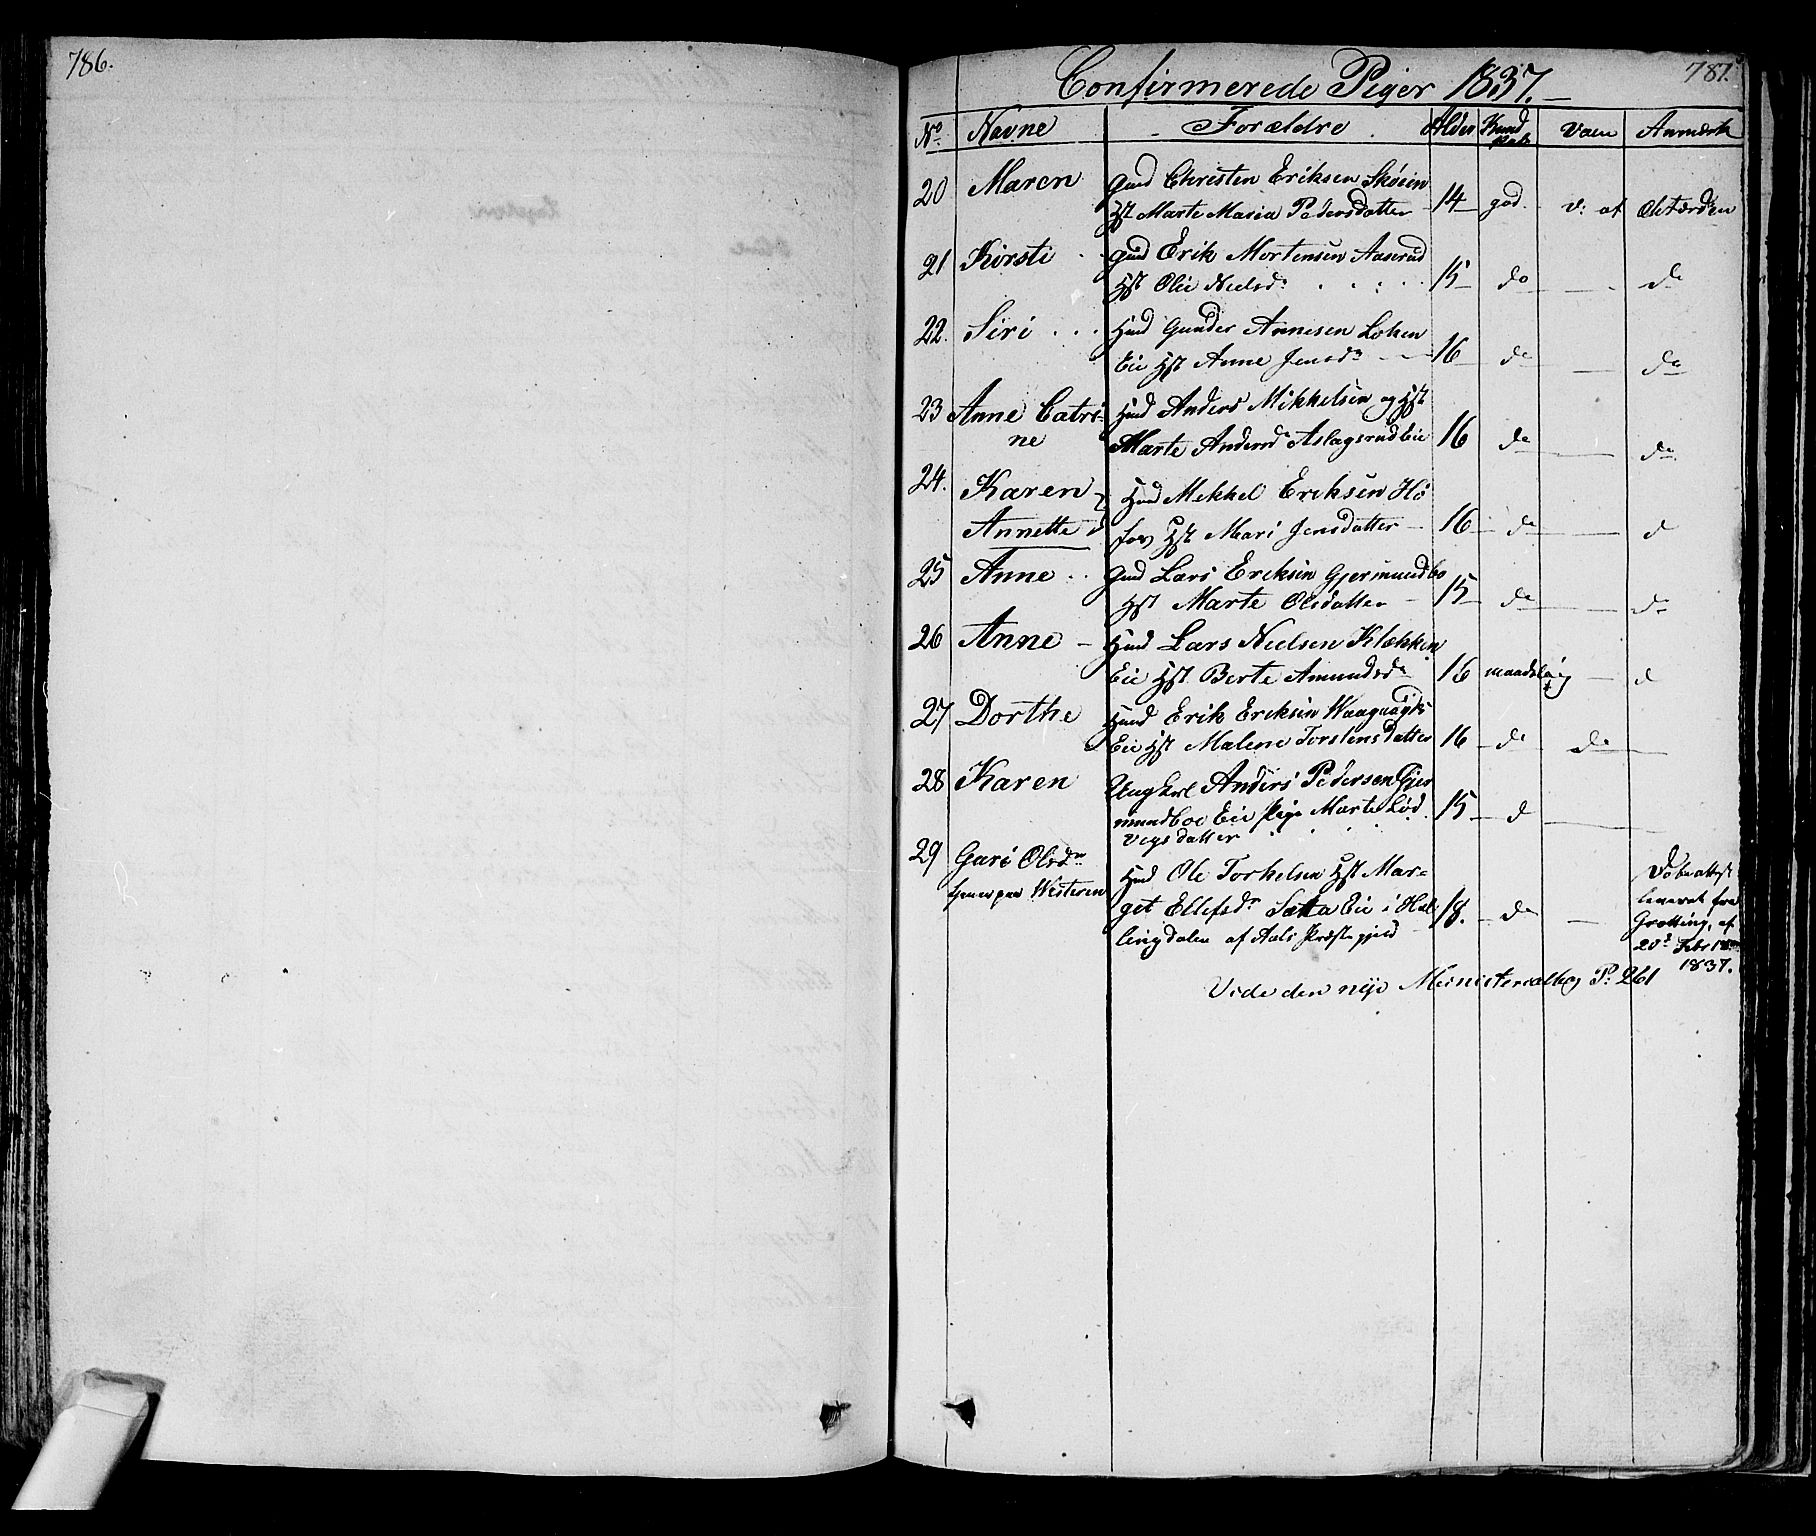 786.
Confirmerede Piger 1837.
787.
No Navne Forældre Alder Kund skab Vacn Anmærk
20 Maren Gmd Christen Eriksen Skøien
Hst Marte Maria Pedersdatter 14 god v: at
21 Kirsti Gmd Erik Mortensen Aaserud
Hst Olie Nielsd. 15 do do
22. Siri Hmd Gunder Annesen Loken
Eie Hst Anne Jensdr 16 do do
23 Anne Catri- Hmd Anders Mikkelsen og Hst
ne Marte Andersd Aslagsrud Eie 16 do do
24. Karen Hmd Mikkel Eriksen Hø
Annette for Hst Mari Jensdatter 16 do d
25 Anne Gmd Lars Eriksen Gjermundbo
Hst Marte Olsdatter 15 do do
26 Anne Hmd Lars Nielsen Klækken
Eie Hst Berte Amundsdr 16 maadelig d
27 Dorthe Hmd Erik Eriksen
Eie Hst Malene Torstensdatter 16 do do
28 Karen Ungkrl Anders Pedersen Gjer
mundboe Eie Pige Marte Lød 15 d
vigsdatter
29 Guri Olsdr Hmd Ole Torkelsen Hst Mar-
tjener paa Westeren get Ellefsdr Sætta Eie i Hal 18. do
lingdalen af Aals Præstegjeld
leveret fra
Grøtting, af
20d Febr
1837.
Vide den nye Ministerialbog P: 261